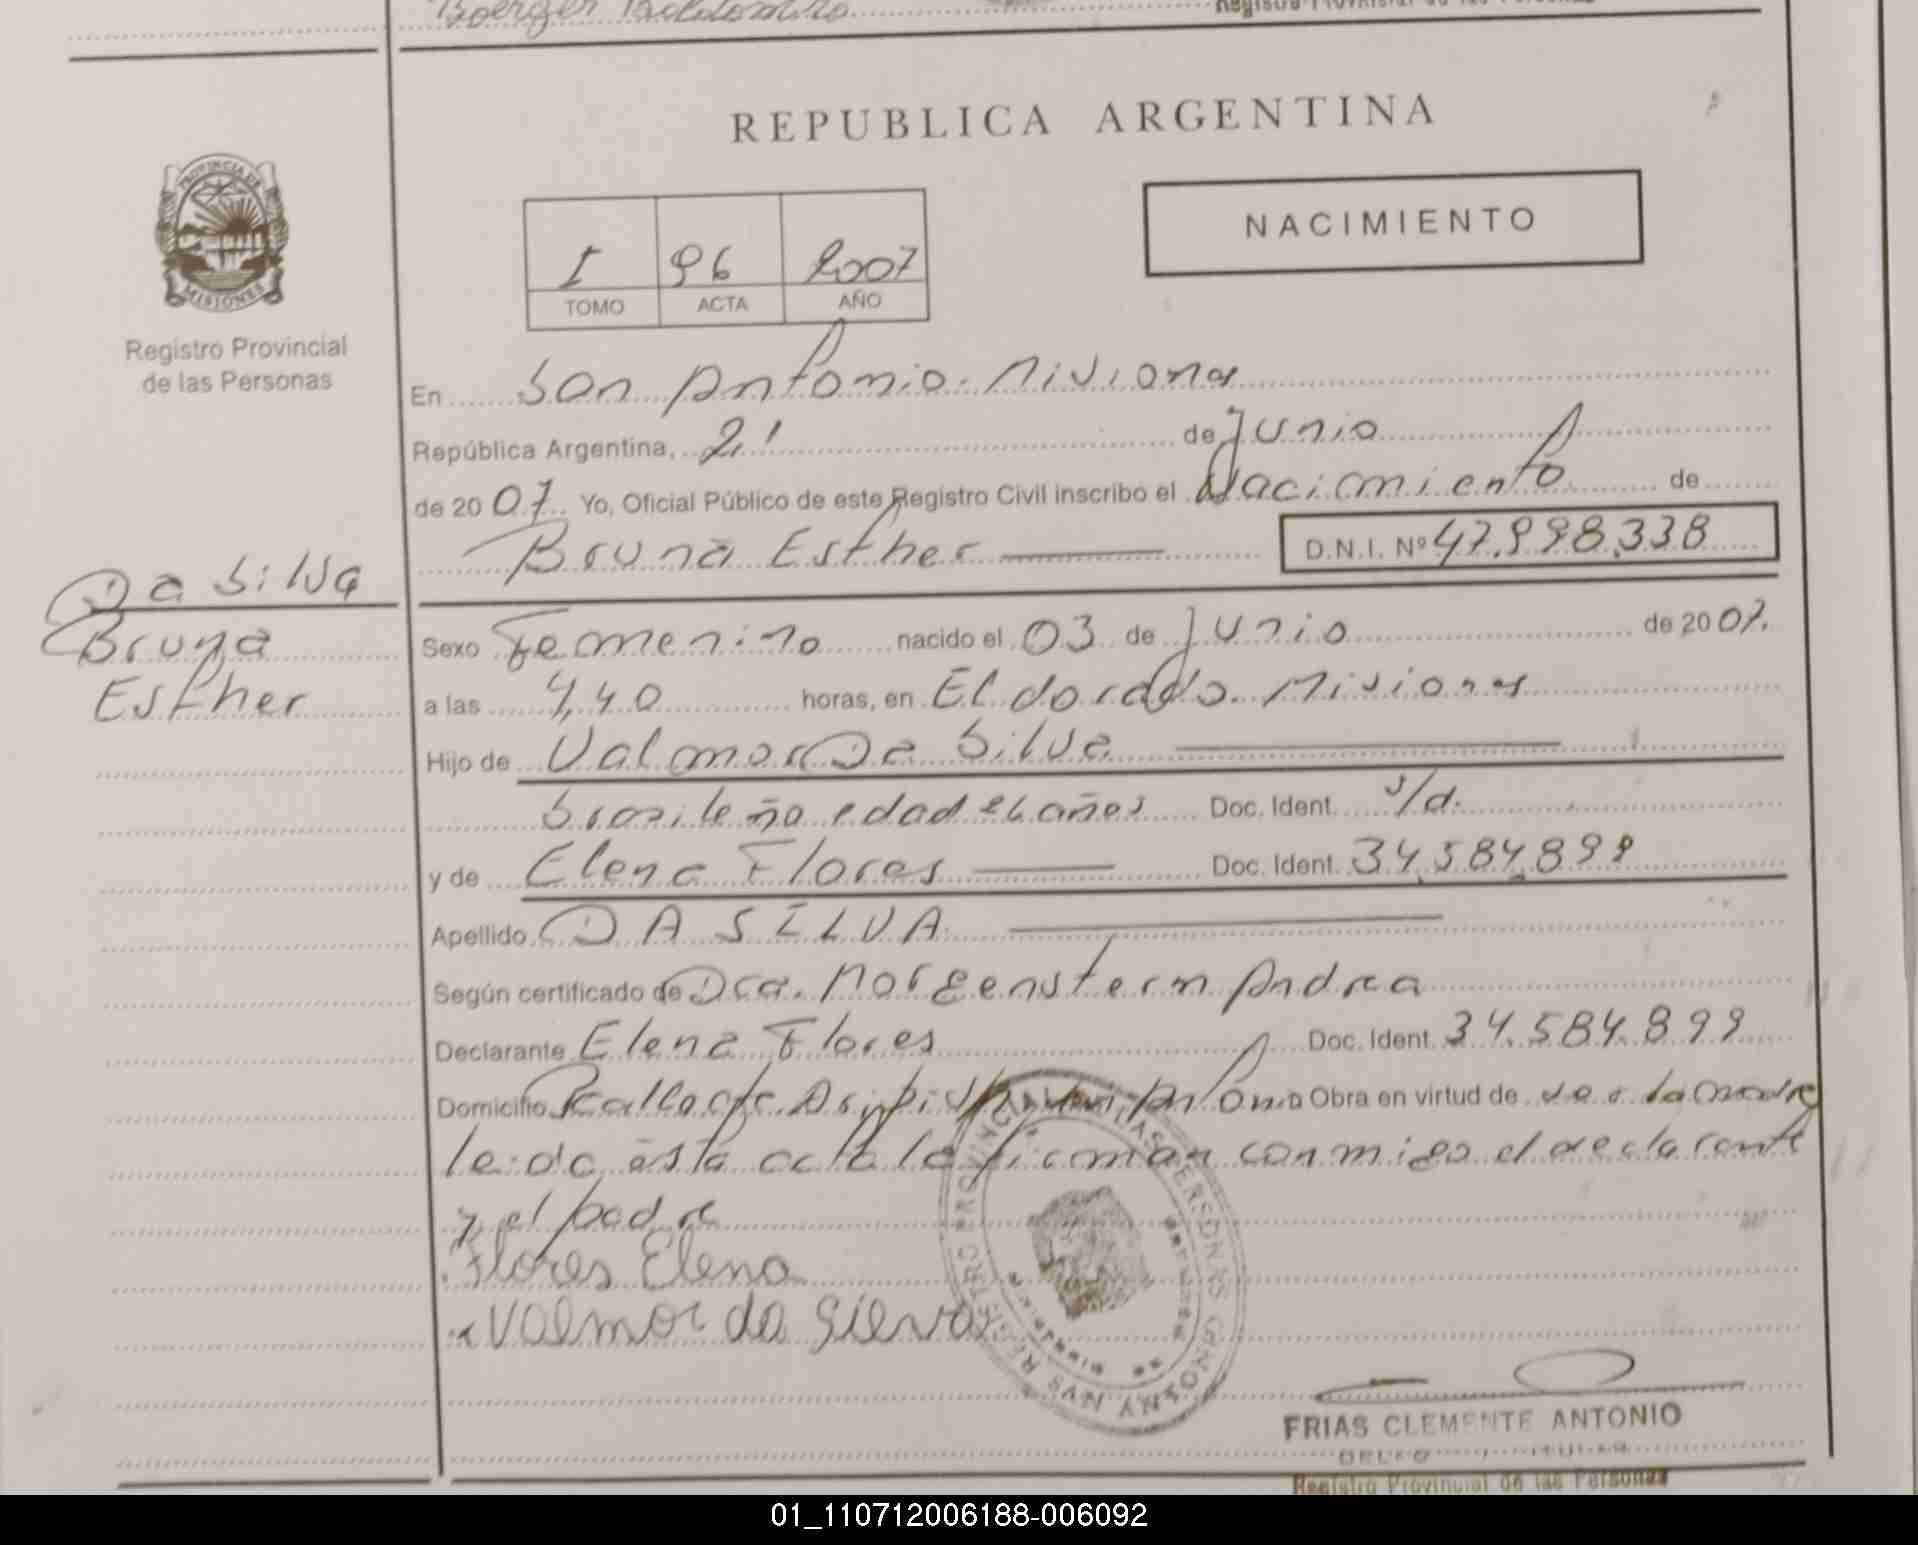 Boerger Baldomiro
Registro Provincial de las Personas
REPUBLICA ARGENTINA
PROVINCIA DE
MISIONES
Registro Provincial
de las Personas
NACIMIENTO
I 96 2007
TOMO ACTA AÑO
En San Antonio. Misiones
República Argentina, 21 de Junio
de 2007. Yo, Oficial Público de este Registro Civil inscribo el Nacimiento de
Bruna Esther D.N.I. Nº 47.998.338
Da Silva
Bruna
Esther
Sexo Femenino nacido el 03 de Junio de 2007.
a las 4,40 horas, en Eldorado. Misiones
Hijo de Valmor Da Silva
brasileño edad años Doc. Ident. s/d.
y de Elena Flores Doc. Ident. 34.584.899
Apellido DA SILVA
Según certificado de Dra. Morgenstern Andrea
Declarante Elena Flores Doc. Ident. 34.584.899
Domicilio Obra en virtud de la madre
leida esta acta la firman conmigo el declarante
y el padre
Flores Elena
Valmor da Silva
FRIAS CLEMENTE ANTONIO
Registro Provincial de las Personas
01_110712006188-006092